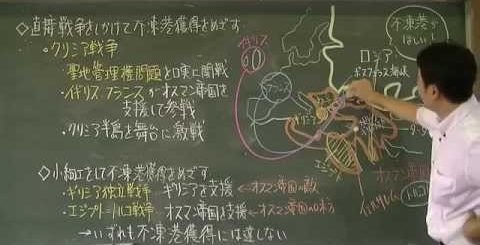 ◇直接戦争をしかけて不凍港獲得をめざす
・クリミア戦争
聖地管理権問題を口実に開戦
・イギリス フランスがオスマン帝国を
支援して参戦
・クリミア半島を舞台に激戦
◇小細工をして不凍港獲得をめざす
・ギリシア独立戦争 ギリシアを支援 ←オスマン帝国の敵
・エジプト=トルコ戦争 オスマン帝国を支援 ←オスマン帝国の味方
→いずれも不凍港獲得には達しない
イギリス
フランス
ロシア
ボスフォラス海峡
不凍港が
ほしい!
ギリシア
エジプト
オスマン帝国
トルコ